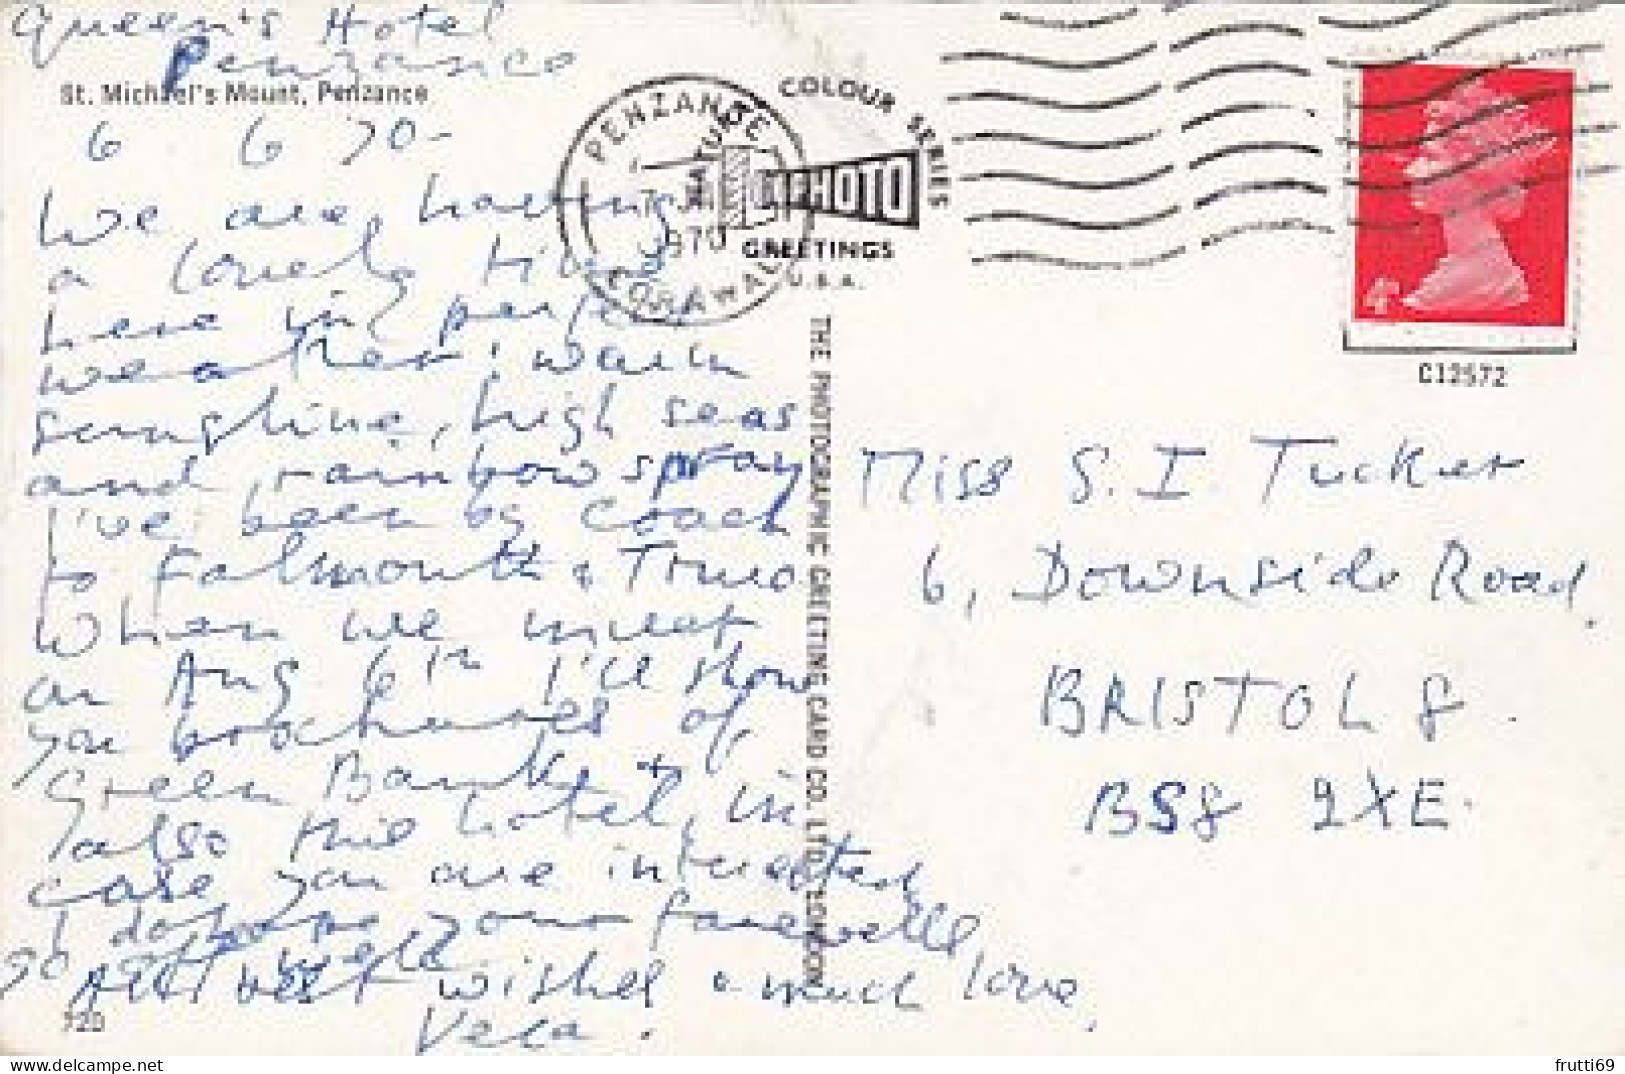 Queen's Hotel
Penzance
St. Michael's Mount, Penzance
6 6 70-
We are having
a lovely time
here in perfect
weather: warm
sunshine, high seas
and rainbow spray
I've been by coach
to Falmouth & Truro
When we meet
on Aug 6th I'll show
you brochures of
Green Bank &
also this hotel, in
case you are interested.
I do hope your farewells
go well
All best wishes & much love,
Vera.
720
PENZANCE
1970
CORNWALL
NATURAL
COLOUR SERIES
PHOTO
GREETINGS
THE PHOTOGRAPHIC GREETING CARD CO. LTD. LONDON
4P
C12572
Miss S. I. Tucker
6, Downside Road,
BRISTOL 8.
BS8 2XE.
frutti69